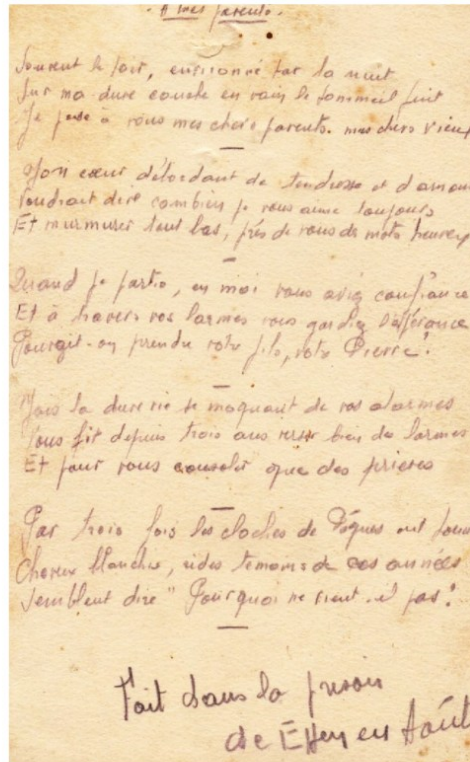 A mes parents.
Souvent le soir, environné par la nuit
Sur ma dure couche en vain le sommeil fuit
Je pense à vous mes chers parents. mes chers vieux
Mon cœur débordant de tendresse et d'amour
Voudrait dire combien je vous aime toujours
Et murmurer tout bas, près de vous de mots heureux
Quand je partis, en moi vous aviez confiance
Et à travers vos larmes vous gardiez l'espérance
Pourait-on prendre votre fils, votre Pierre!
Mais la dure vie se moquant de vos alarmes
Vous fit depuis trois ans verser bien des larmes
Et pour vous consoler que des prières
Par trois fois les cloches de Pâques ont
Cheveux blanches, rides temoins de ces années
Semblent dire " Pourquoi ne vient-il pas!
Fait dans la prison
de en Août